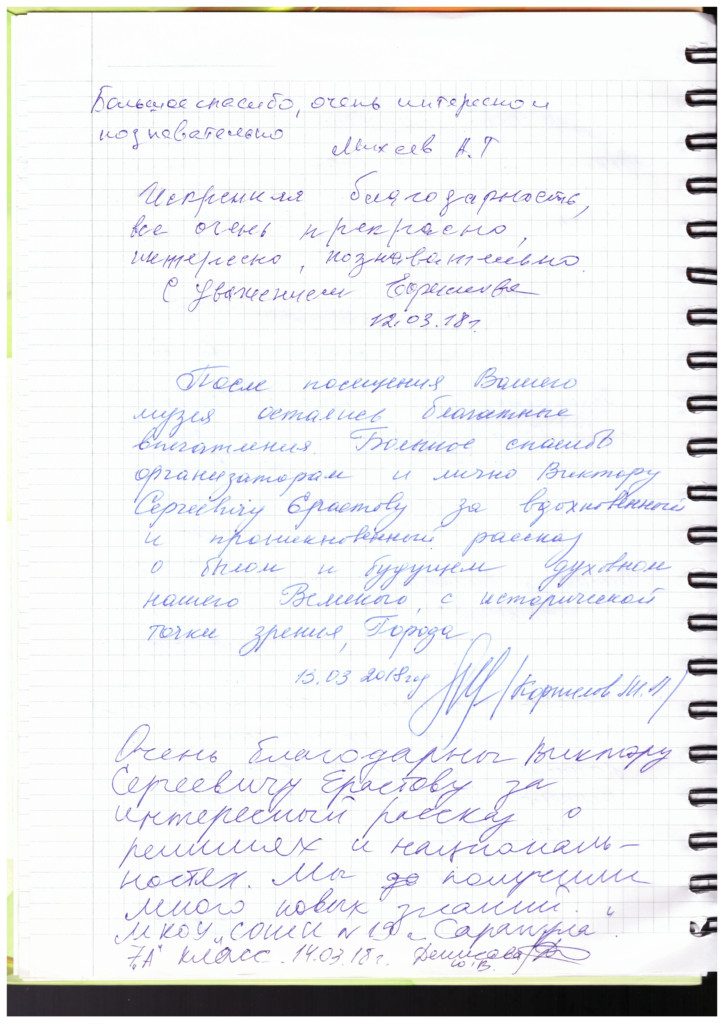 Большое спасибо, очень интересно и
познавательно
Михеев А.Г
Искренняя благодарность,
все очень прекрасно,
интересно, познавательно.
С уважением
12.03.18г.
После посещения Вашего
музея остались благатные
впечатления. Большое спасибо
организаторам и лично Виктору
Сергеевичу Ерастову за вдохновенный
и проникновенный рассказ
о былом и будущем духовном
нашего Великого, с исторической
точки зрения, Города
13.03 2018год /Корнилов М.П/
Очень благодарны Виктору
Сергеевичу Ерастову за
интересный рассказ о
религиях и националь-
ностях. Мы получили
много новых знаний.
МКОУ „СОШ №19 г. Сарапула".
7„А" класс. 14.03.18г. Денисова
Ю.В.